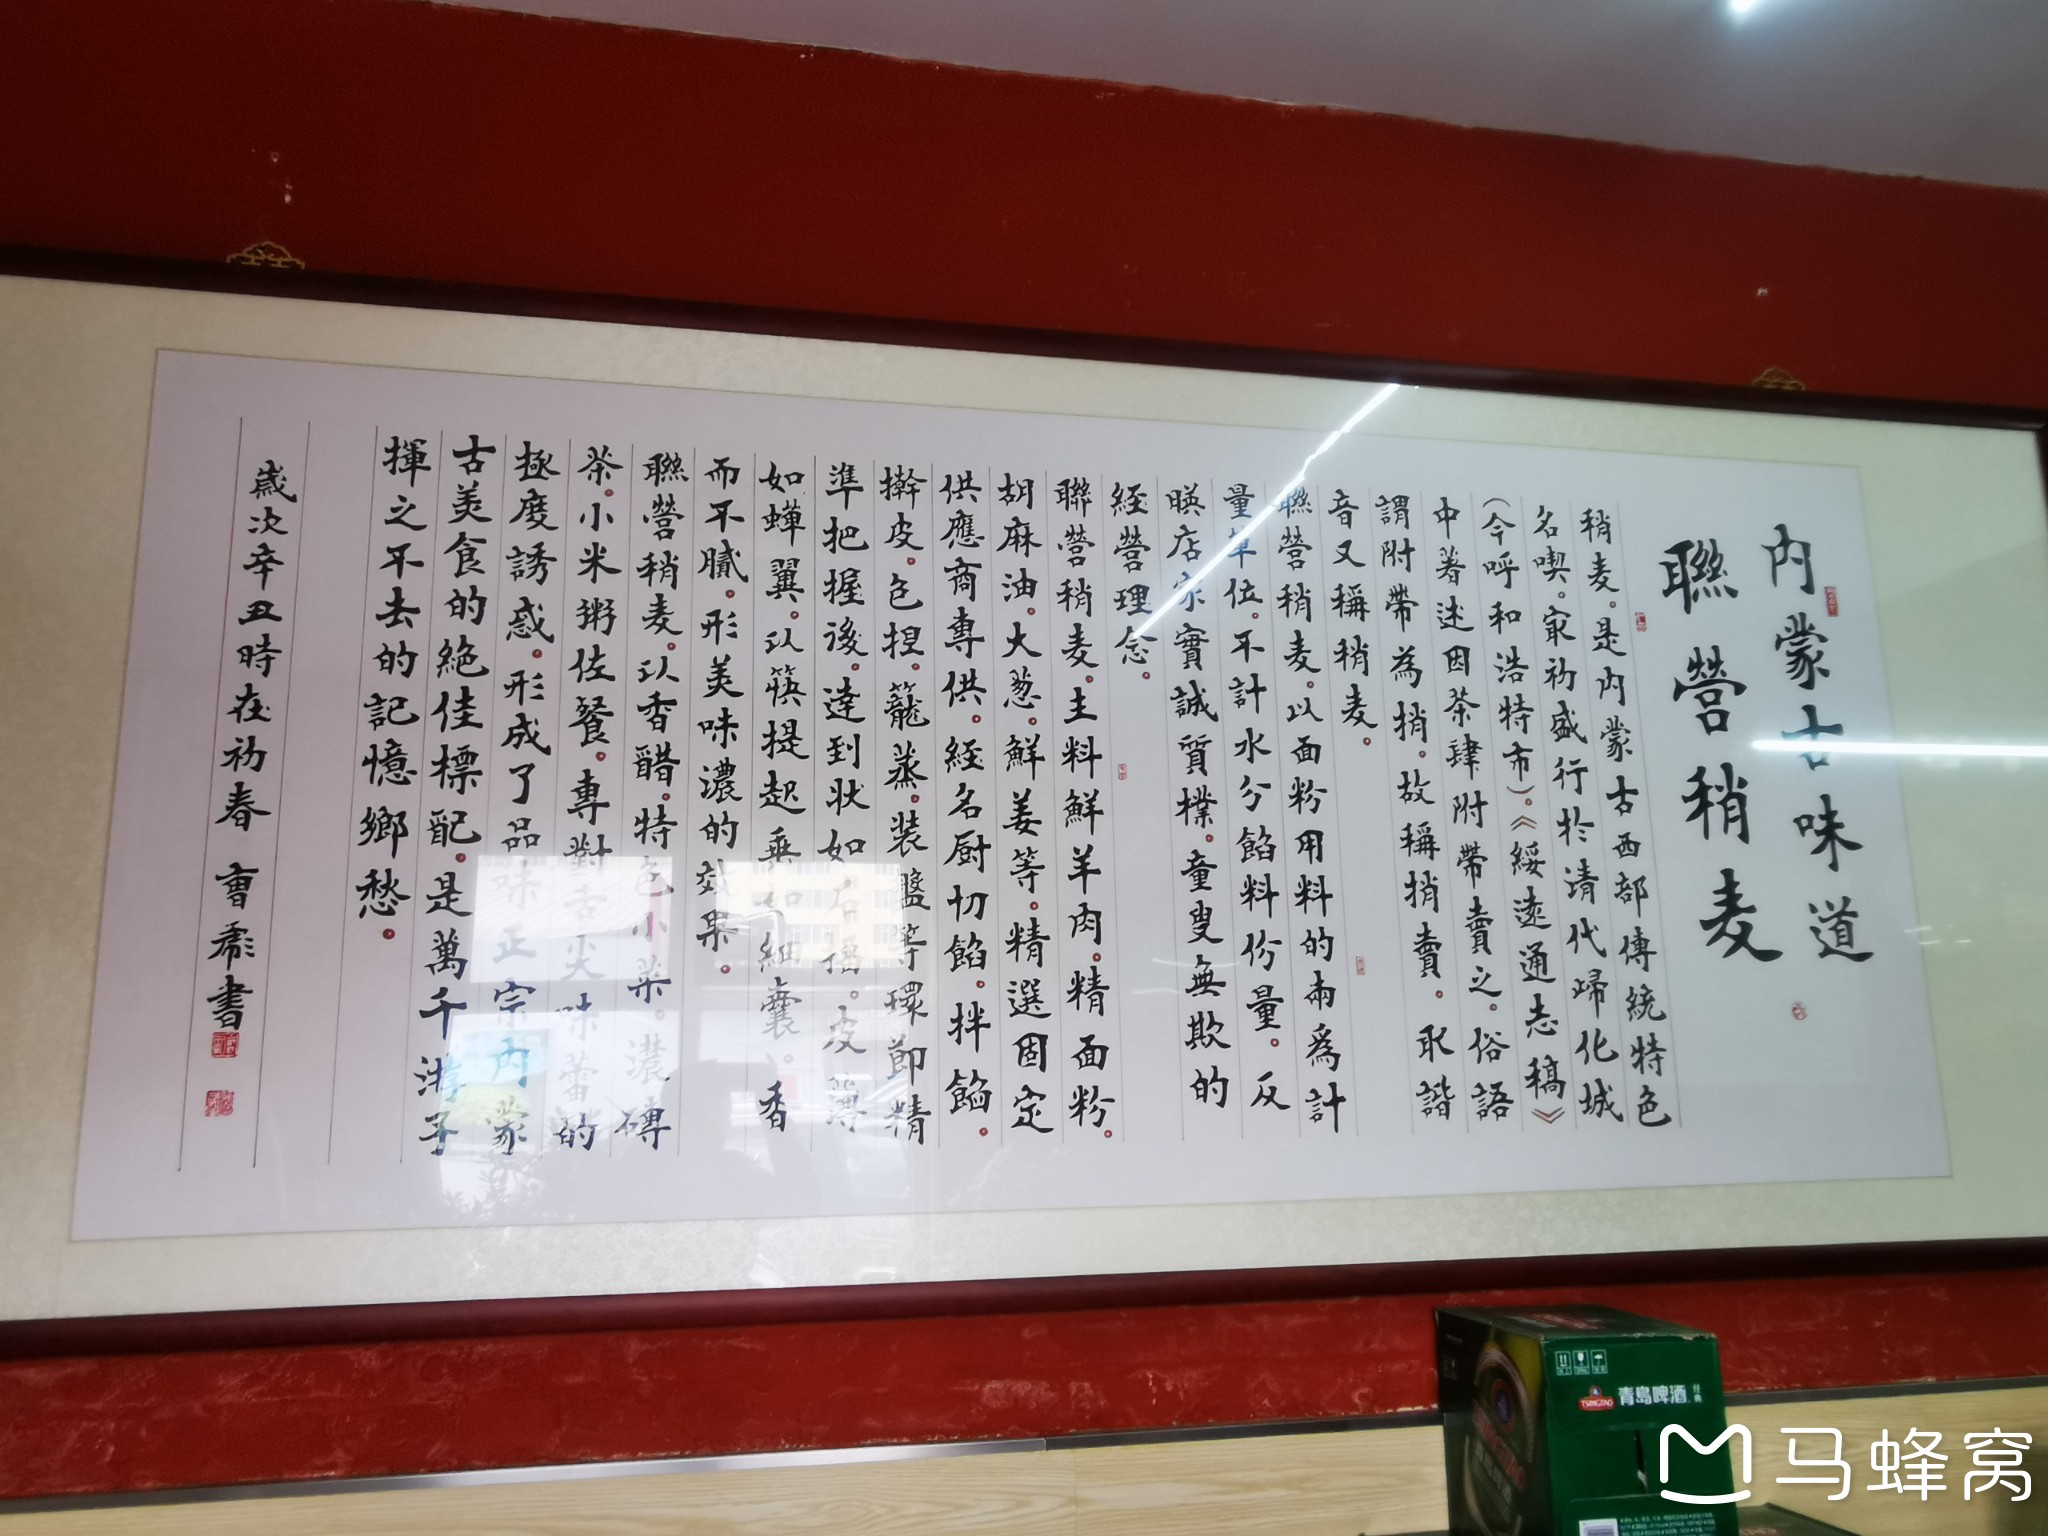 内蒙古味道
聯營稍麦
稍麦。是内蒙古西部傳統特色
名喫。冣初盛行於清代歸化城
(今呼和浩特市)。《綏遠通志稿》
中著述因茶肆附帶賣之。俗語
謂附帶為捎。故稱捎賣。取諧
音又稱稍麦。
聯營稍麦。以面粉用料的兩爲計
量单位。不計水分餡料份量。反
映店家實誠質樸。童叟無欺的
經營理念。
聯營稍麦。主料鮮羊肉。精面粉。
胡麻油。大葱。鮮姜等。精選固定
供應商專供。經名厨切餡。拌餡。
擀皮。包捏。籠蒸。装盤等環節精
準把握後。達到状如石榴。皮薄
如蟬翼。以筷提起垂如細囊。香
而不膩。形美味濃的效果。
聯營稍麦。以香醋。特色小菜。濃磚
茶。小米粥佐餐。專對舌尖味蕾的
極度誘惑。形成了品味正宗内蒙
古美食的絶佳標配。是萬千游子
揮之不去的記憶鄉愁。
歲次辛丑時在初春 書
TSINGTAO 青島啤酒 经典
马蜂窝